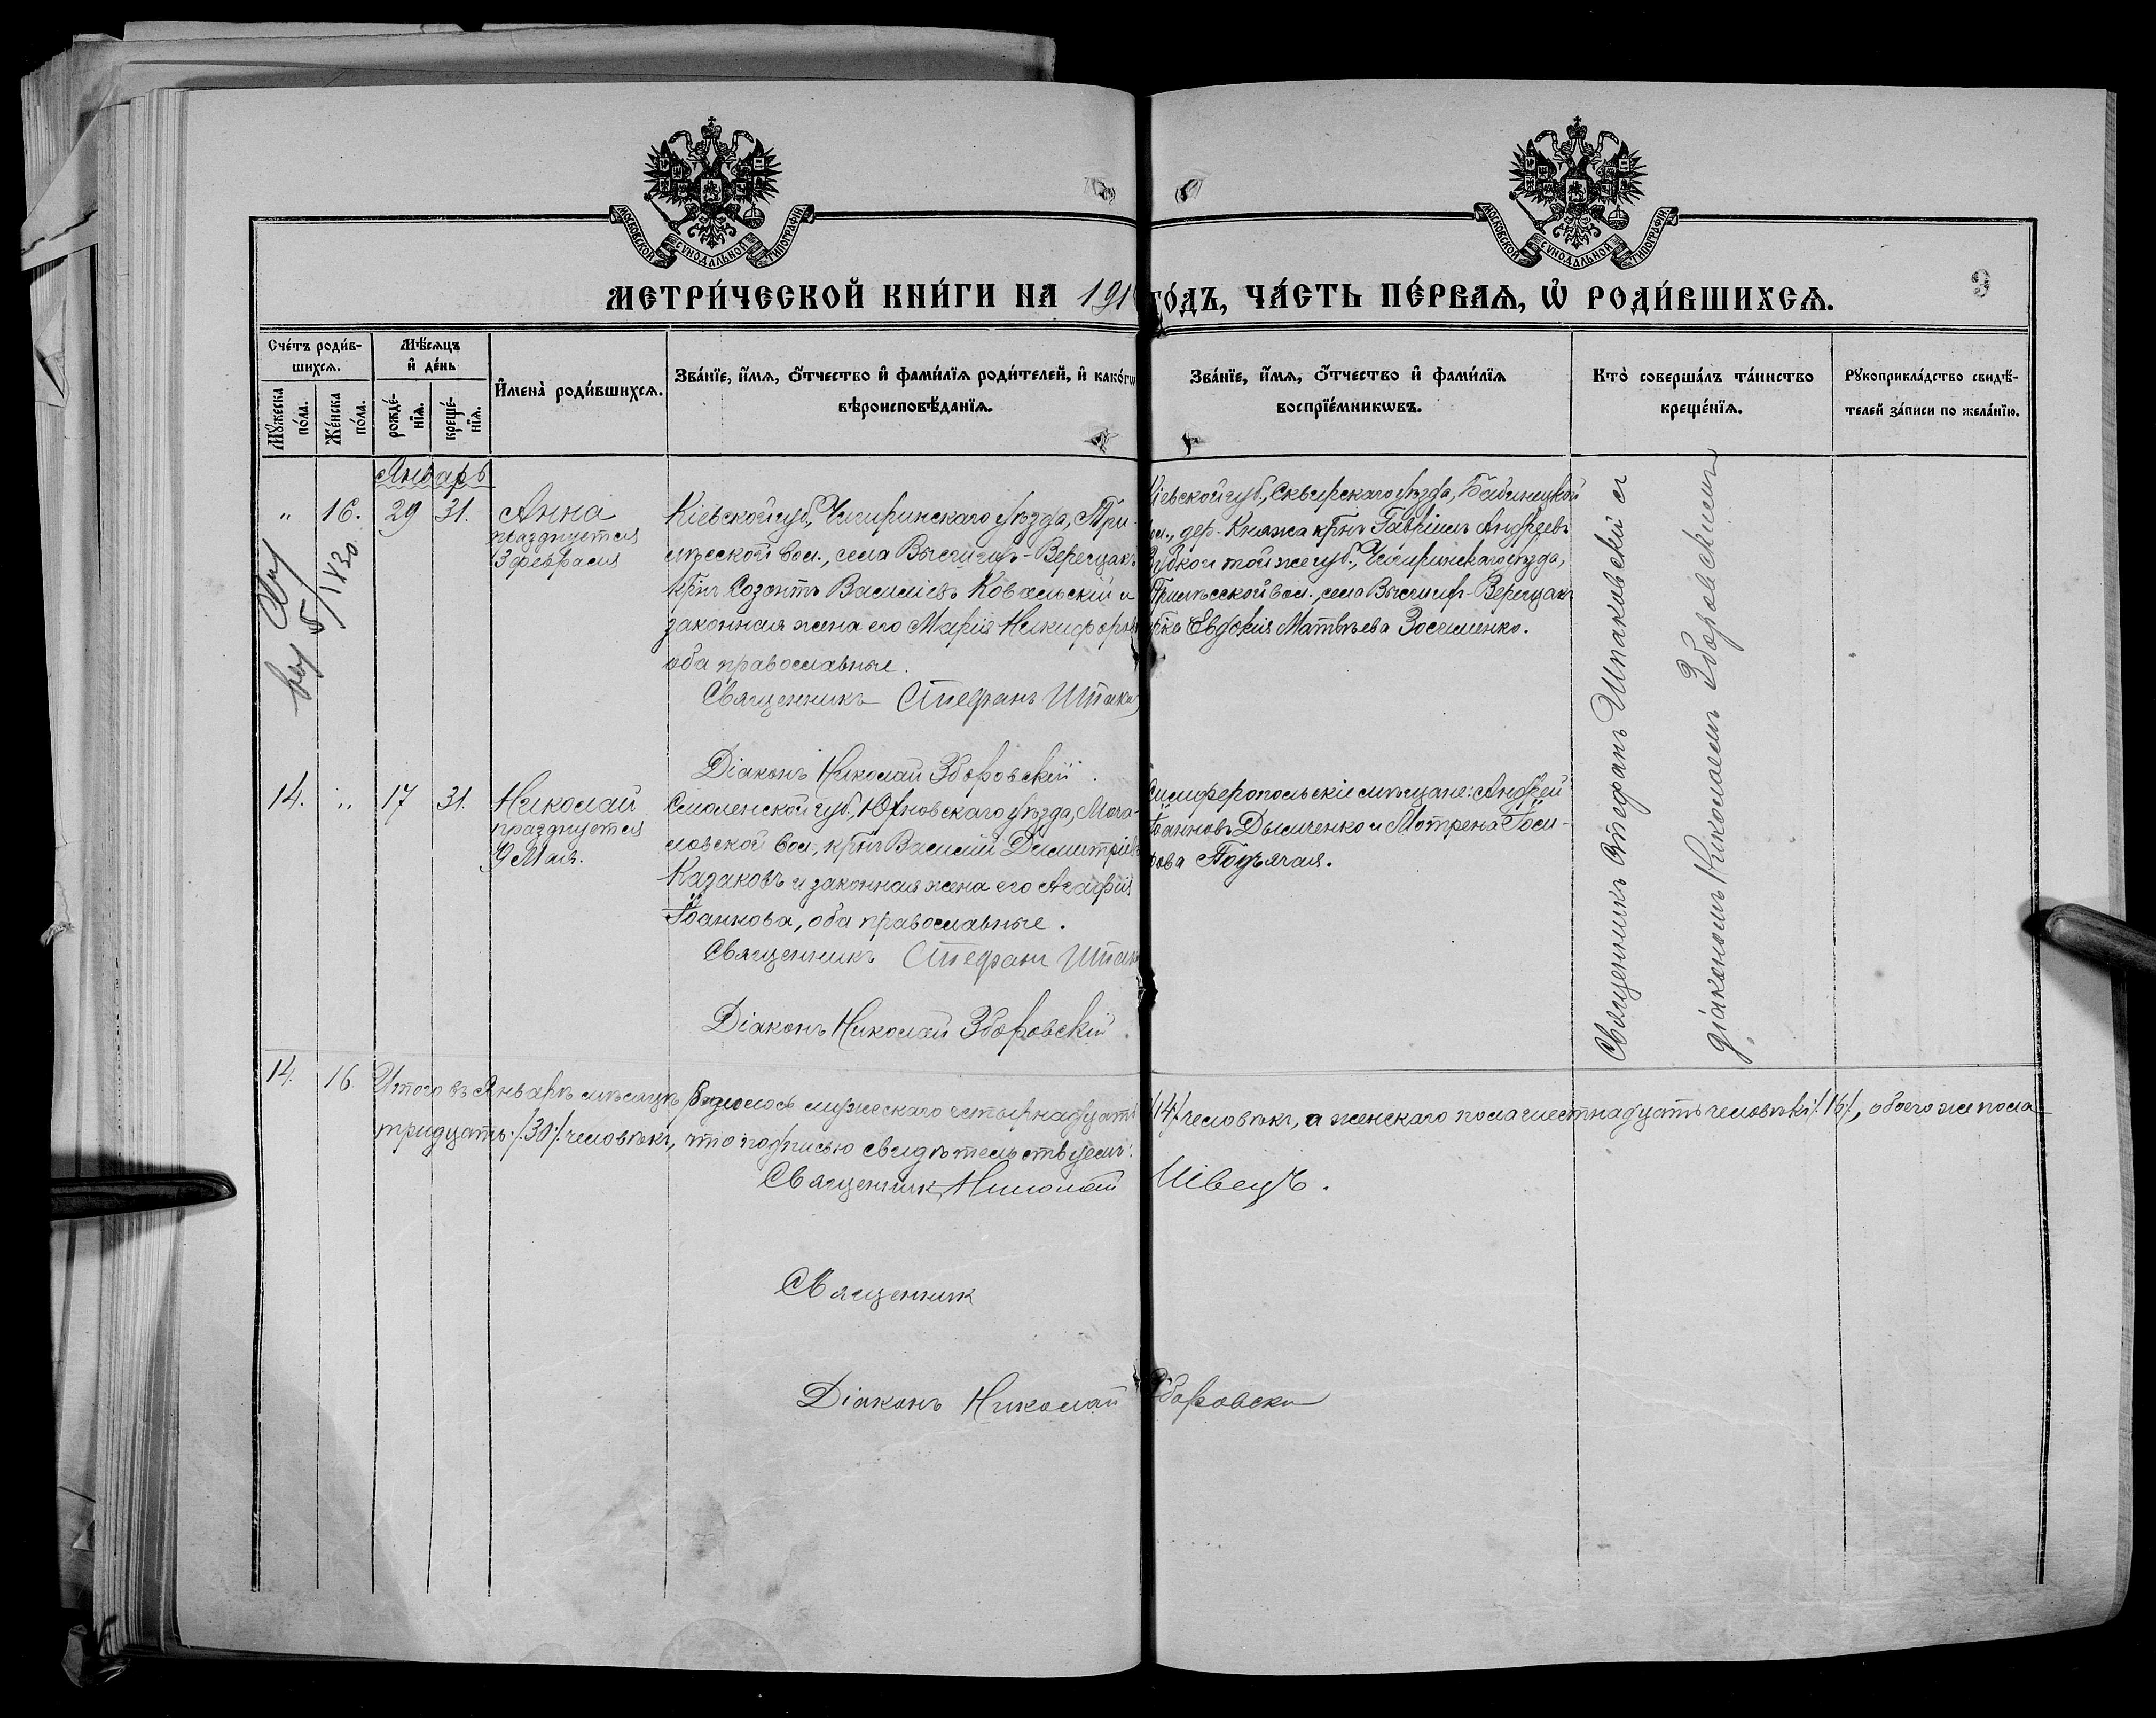 МОСКОВСКОЙ СѴНОДАЛЬНОЙ ТИПОГРАФІИ
МОСКОВСКОЙ СѴНОДАЛЬНОЙ ТИПОГРАФІИ
9
МЕТРИ́ЧЕСКОЙ КНИ́ГИ НА 191 ГО́ДЪ, ЧА́СТЬ ПЕ́РВАѦ, Ѡ҆ РОДИ́ВШИХСѦ.
Сче́тъ роди́в-
шихсѧ.
Мꙋ́жеска по́ла.
Же́нска по́ла.
Мѣ́сѧцъ
и҆ де́нь
рожде́-
нїѧ.
креще́-
нїѧ.
И҆мена̀ роди́вшихсѧ.
Зва́нїе, и҆́мѧ, ѻ҆́тчество и҆ фами́лїѧ роди́телей, и҆ како́гѡ
вѣроисповѣ́данїѧ.
Зва́нїе, и҆́мѧ, ѻ҆́тчество и҆ фами́лїѧ
воспрїе́мникѡвъ.
Кто̀ соверша́лъ та́инство
креще́нїѧ.
Рꙋкоприкла́дство свидѣ́-
телей за́писи по жела́нїю.
Январь
" 16. 29 31. Анна
празднуется
3 февраля
Кіевской губ., Чигиринскаго уѣзда, Три-
лѣсской вол., села Вьсшихъ-Верещакъ
крнъ Созонтъ Васильевъ Ковальскій и
законная жена его Марія Никифорова
оба православные.
Священникъ Стефанъ Шпаков
Діаконъ Николай Зборовскій.
Кіевской губ., Сквирскаго уѣзда, Бабинецкой
вол., дер. Княжа крнъ Гавріилъ Андреевъ
той же губ., Чигиринскаго уѣзда,
Трилѣсской вол., села Верещакъ
крка Евдокія Матвѣева
14. " 17 31. Николай
празднуется
9 Мая.
Смоленской губ., Юхновскаго уѣзда,
ловской вол., крнъ Василій Димитріевъ
Казаковъ и законная жена его Агафія
Іоаннова, оба православные.
Священникъ Стефанъ Шпак
Діаконъ Николай Зборовскій.
Симферопольскіе мѣщане: Андрей
Іоанновъ Дымченко и Мотрена
Подъячая.
Священникъ Стефанъ Шпаковскій съ
діакономъ Николаемъ Зборовскимъ
14. 16. Итого въ Январѣ мѣсяцѣ родилось мужескаго четырнадцать /14/ человѣкъ, а женскаго пола шестнадцать человѣкъ /16/, обоего же пола
тридцать /30/ человѣкъ, что подписью свидѣтельствуемъ:
Священникъ Николай Швецъ.
Священник
Діаконъ Николай Зборовски